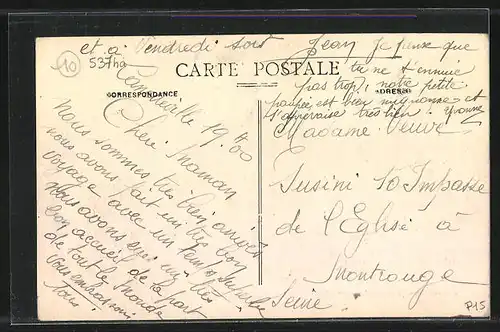 et à Vendredi soir
10
537ha
CARTE POSTALE
CORRESPONDANCE
ADRESSE
19h00
Chère Maman
nous sommes très bien arrivés
nous avons fait un très bon
voyage avec un temps superbe
nous avons eu un très
bon accueil de la part
de tout le monde
vous embrassons
Tous.
Jean je pense que
tu ne t'ennuie
pas trop, notre petite
poupée est bien mignonne et
très bien. Yvonne
Madame Veuve
Susini 10 Impasse
de l'Eglise à
Montrouge
Seine
P15